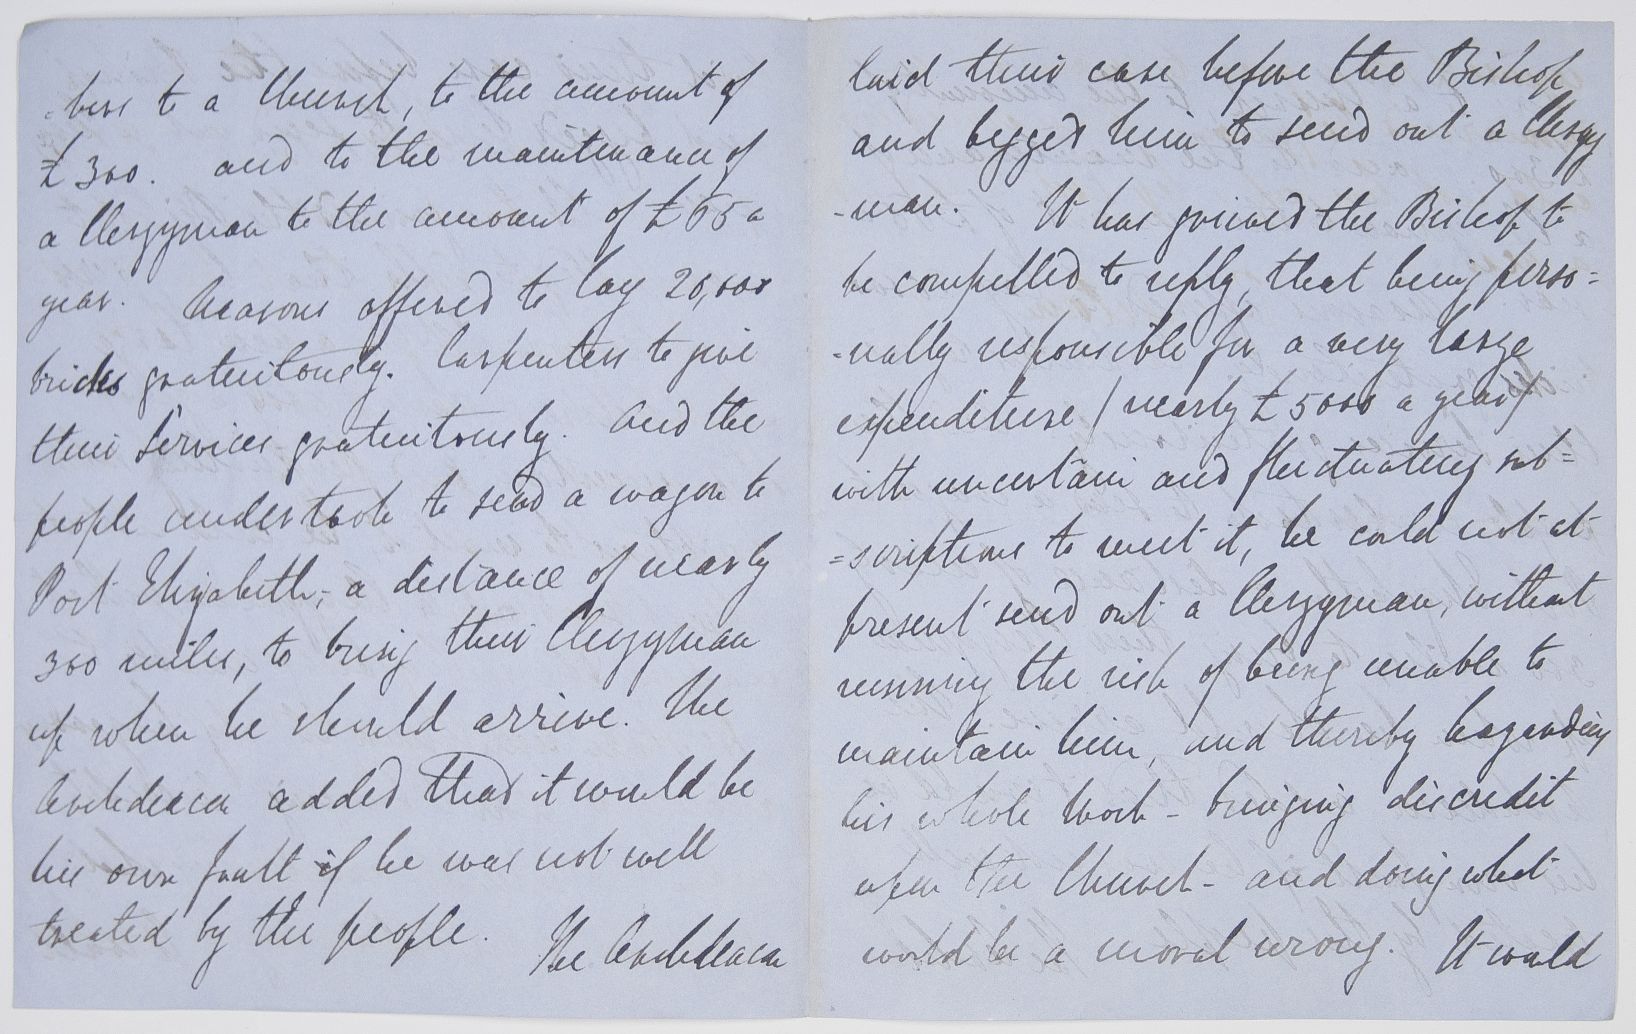 =bers to a Church, to the amount of
£300. and to the maintenance of
a Clergyman to the amount of £65 a
year. Masons offered to lay 20,000
bricks gratuitously. Carpenters to give
their Services gratuitously. And the
people undertook to send a wagon to
Port Elizabeth, a distance of nearly
300 miles, to bring their Clergyman
up when he should arrive. The
Archdeacon added that it would be
his own fault if he was not well
treated by the people. The Archdeacon
laid their case before the Bishop
and begged him to send out a Clergy
-man. It has grieved the Bishop to
be compelled to reply, that being perso=
-nally responsible for a very large
expenditure (nearly £5000 a year)
with uncertain and fluctuating sub=
=scriptions to meet it, he could not at
present send out a Clergyman, without
running the risk of being unable to
maintain him, and thereby hazarding
his whole work - bringing discredit
upon the Church - and doing what
would be a moral wrong. It would